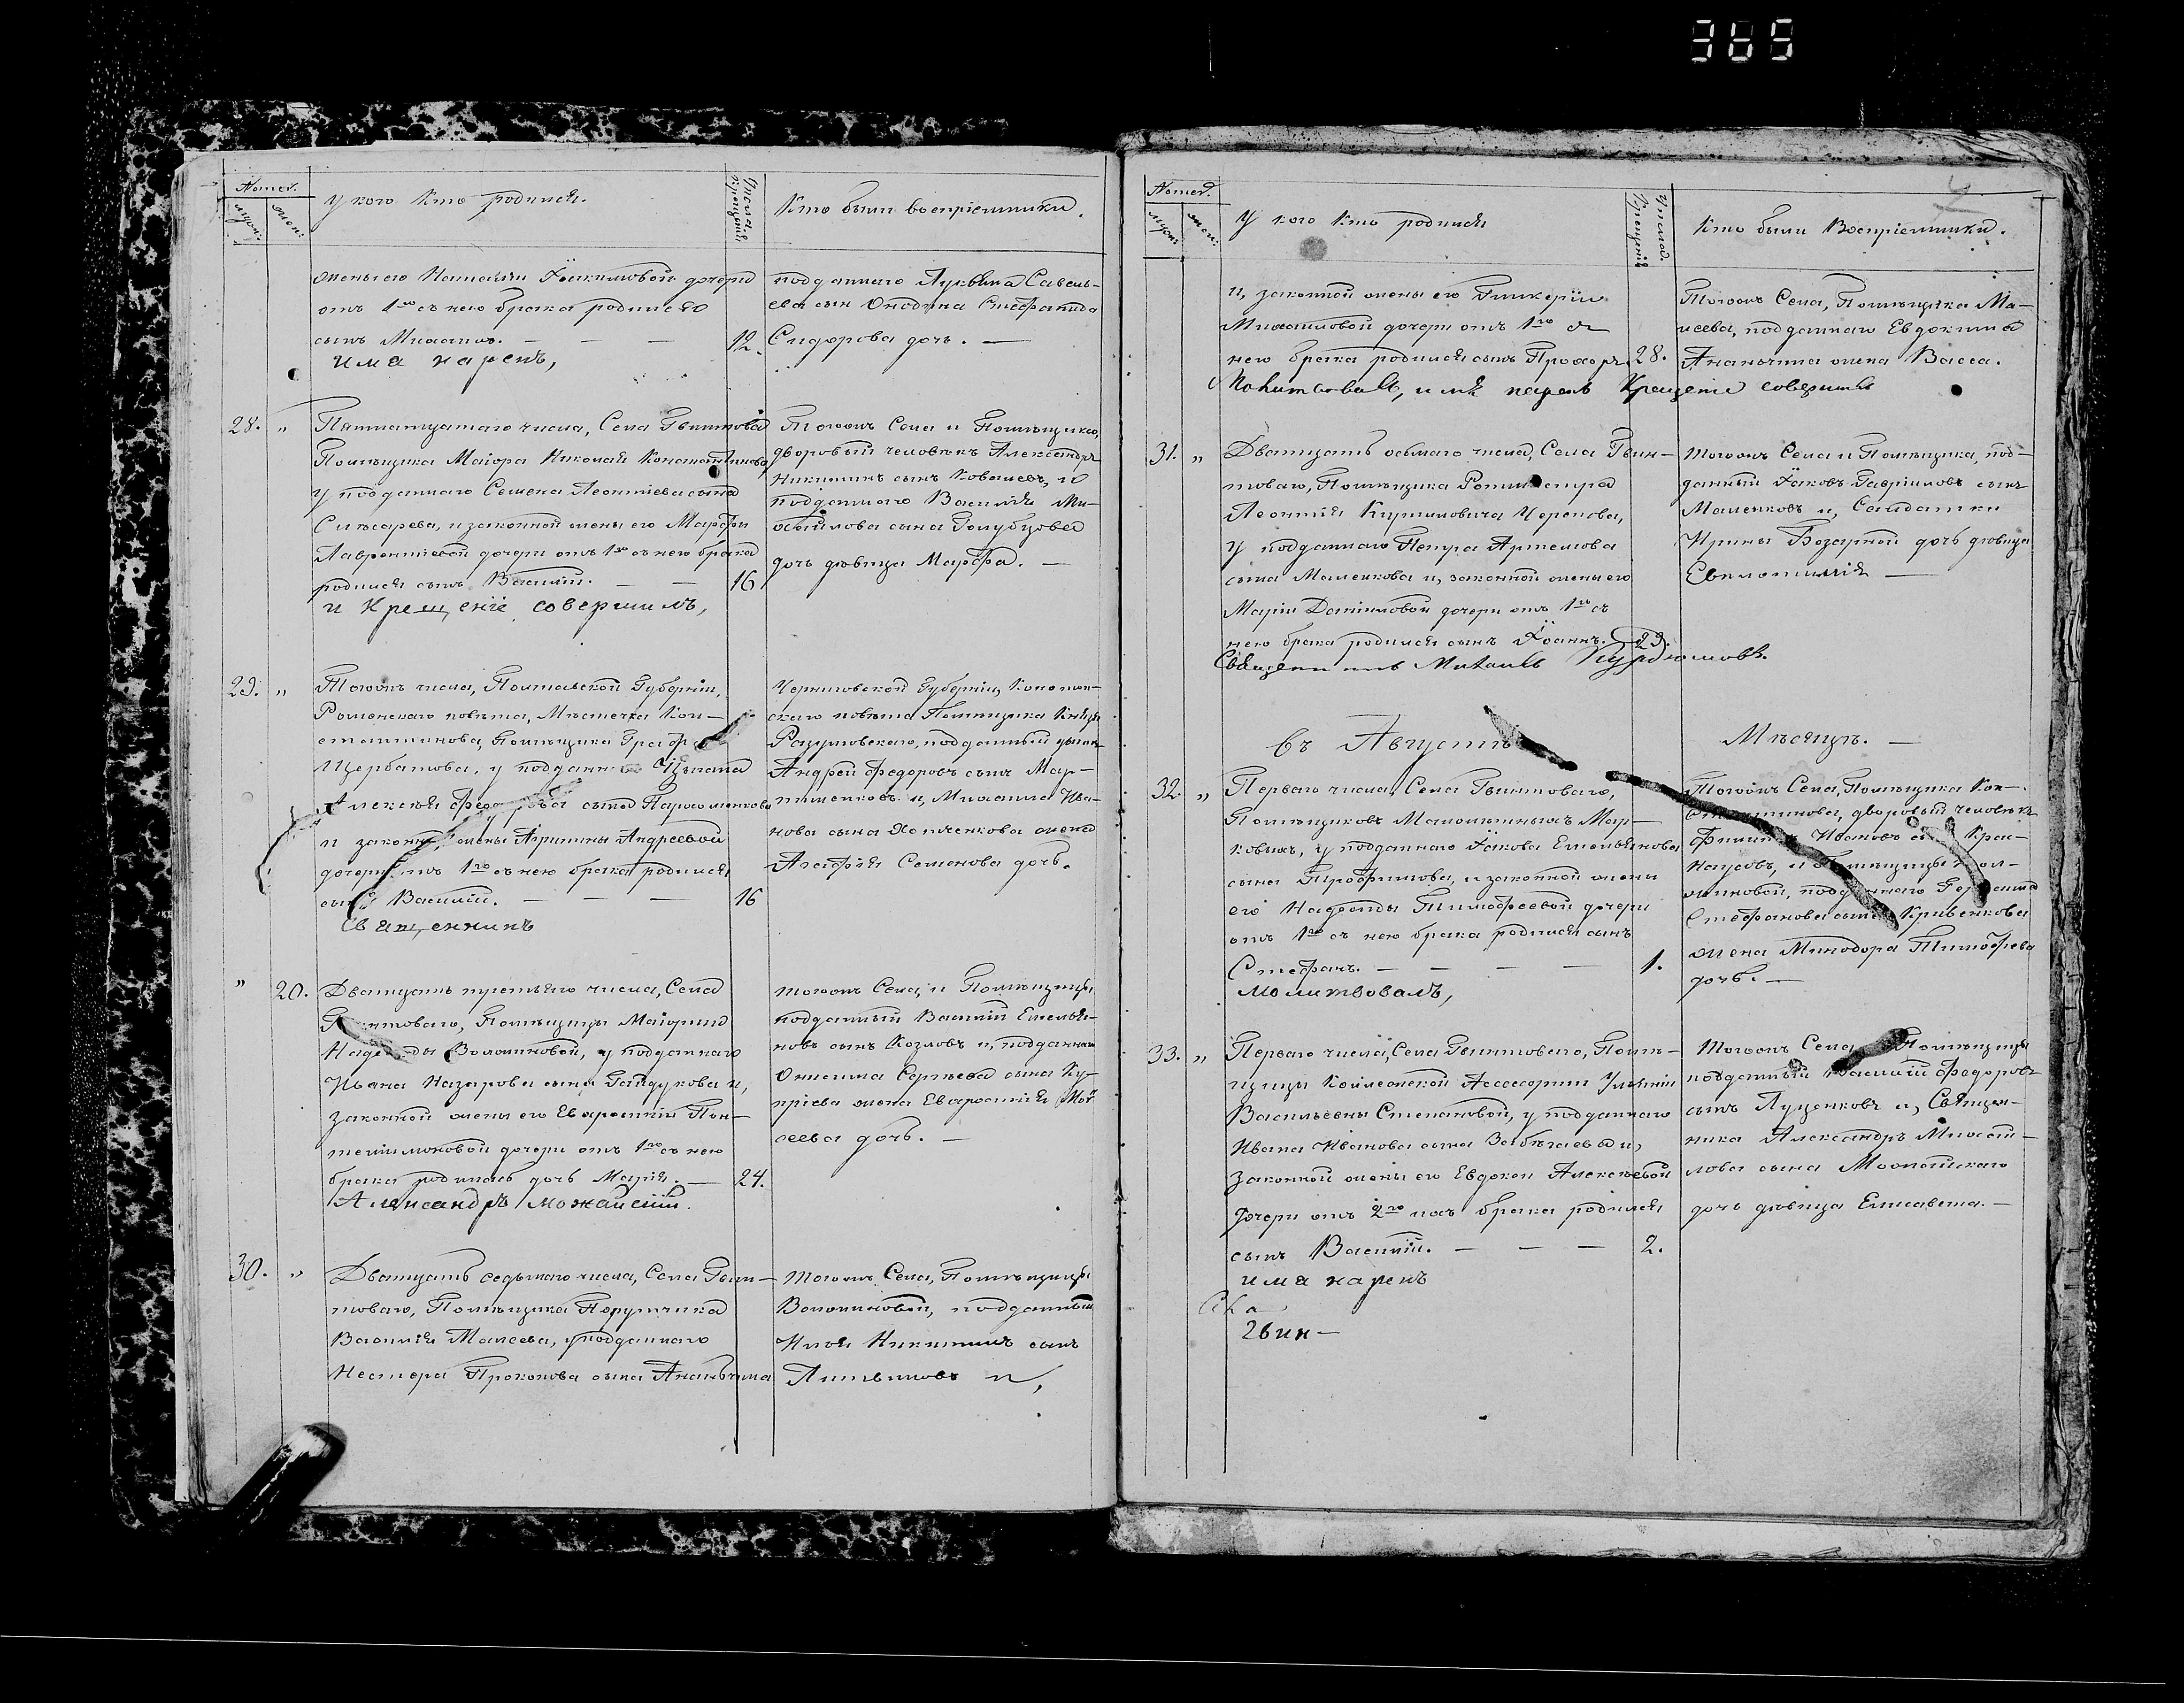 365
Номер.
муж:
жен:
У кого кто родился.
Число крещенія
Кто были воспріемники.
жены его Наталіи Іоакимовой дочери
отъ 1го съ нею брака родился
сынъ Михаилъ. — — — 12.
имя нареч,
подданнаго Савель-
ева сын Стефанида
Сидорова дочь. —
28. „ Пятнадцатаго числа, Села Гвинтоваго
Помѣщика Маіора Николая Константинова
у подданнаго Семена Леонтіева сына
Слѣсарева, и законной жены его Марфы
Лаврентіевой дочери отъ 1го съ нею брака
родился сынъ Василій. — — 16
и Крещеніе совершилъ,
Тогожъ Села и Помѣщика,
дворовый человѣкъ Александръ
Никитинъ сынъ Ковалевъ, и
подданнаго Василія Ми-
хайлова сына Голубцова
дочь дѣвица Марфа. —
29. „ Тогожъ числа, Полтавской Губерніи,
Роменскаго повѣта, Мѣстечка Кон-
стантинова, Помѣщика Графа
Щербатова, у подданнаго Цыгана
Алексѣя Федорова сына Пархоменкова
и законной жены Ирины Андреевой
дочери отъ 1го съ нею брака родился
сынъ Василій. — — — 16
Священникъ
Черниговской Губерніи, Конотоп-
скаго повѣта Помѣщика Князя
Разумовскаго, подданный цыган
Андрей Федоровъ сынъ Мар-
тыненковъ и, Михаила Ива-
нова сына жена
Агафія Семенова дочь.
„ 20. Двадцать третьяго числа, Села
Гвинтоваго, Помѣщицы Маіорши
Надежды Воложиновой, у подданнаго
Ивана Назарова сына Гайдукова и,
законной жены его Евдокіи Пан-
телимоновой дочери отъ 1го съ нею
брака родилась дочь Марія. — 24.
Александръ Можайскій.
тогожъ Села, и Помѣщицы
подданный Василій Емелья-
новъ сынъ Козловъ и, подданнаго
Онисима Сергѣева сына Ку-
пріева жена Евдокія Мой-
сеева дочь. —
30. „ Двадцать седьмаго числа, Села Гвин-
товаго, Помѣщика Порутчика
Василія Малеева, у подданнаго
Нестера Прокопова сына Ананьчина
тогожъ Села, Помѣщицы
Воложиновой, подданный
Илья Никитинъ сынъ
Литвиновъ и,
Номер.
муж:
жен:
У кого кто родился
Число Крещенія
Кто были Воспріемники.
и, законной жены его Гликеріи
Михаиловой дочери отъ 1го съ
нею брака родился сынъ Прохоръ. 28.
Молитвовалъ, имя нарекъ Крещеніе совершилъ
Тогожъ Села, Помѣщика Ма-
леева, подданнаго Евдокима
Ананьчина жена Васса.
31. „ Двадцать осьмаго числа, Села Гвин-
товаго, Помѣщика Ротмистра
Леонтія Кириловича Черепова,
у подданнаго Петра Артемова
сына Маленкова и, законной жены его
Маріи Даниловой дочери отъ 1го съ
нею брака родился сынъ Іоаннъ. 29.
Священникъ Михаилъ Курдюмовъ.
тогожъ Села и Помѣщика, под-
данный Іаковъ Гавриловъ сынъ
Маленковъ и, Салдатки
Ирины дочь дѣвица
Евлампія —
въ Августѣ Мѣсяцѣ. —
32. „ Перваго числа, Села Гвинтоваго,
Помѣщиковъ Малолѣтныхъ Мар-
ковыхъ, у подданнаго Іакова Емельянова
сына Трофимова, и законной жены
его Надежды Тимофеевой дочери
отъ 1го съ нею брака родился сынъ
Стефанъ. — — — — 1.
Молитвовалъ,
Тогожъ Села, Помѣщика Кон-
стантинова, дворовый человѣкъ
Филипъ Ивановъ сынъ Крас-
ноусовъ, и Помѣщицы Вол-
ожиновой, подданнаго Герасима
Стефанова сына Кривенкова
жена Минодора Тимофѣева
дочь. —
33. „ Перваго числа, Села Гвинтоваго, Помѣ-
щицы Коллежской Ассесорши Ульяніи
Васильевны Степановой, у подданнаго
Ивана Иванова сына Забѣгаева и,
законной жены его Евдокіи Алексѣевой
дочери отъ 2го ихъ брака родился
сынъ Василій. — — — 2.
имя нарекъ
Села
Гвин—
тогожъ Села Помѣщицы
подданный Василій Федоровъ
сынъ Луценковъ и, Священ-
ника Александра Михай-
лова сына Можайскаго
дочь дѣвица Елисавета. —